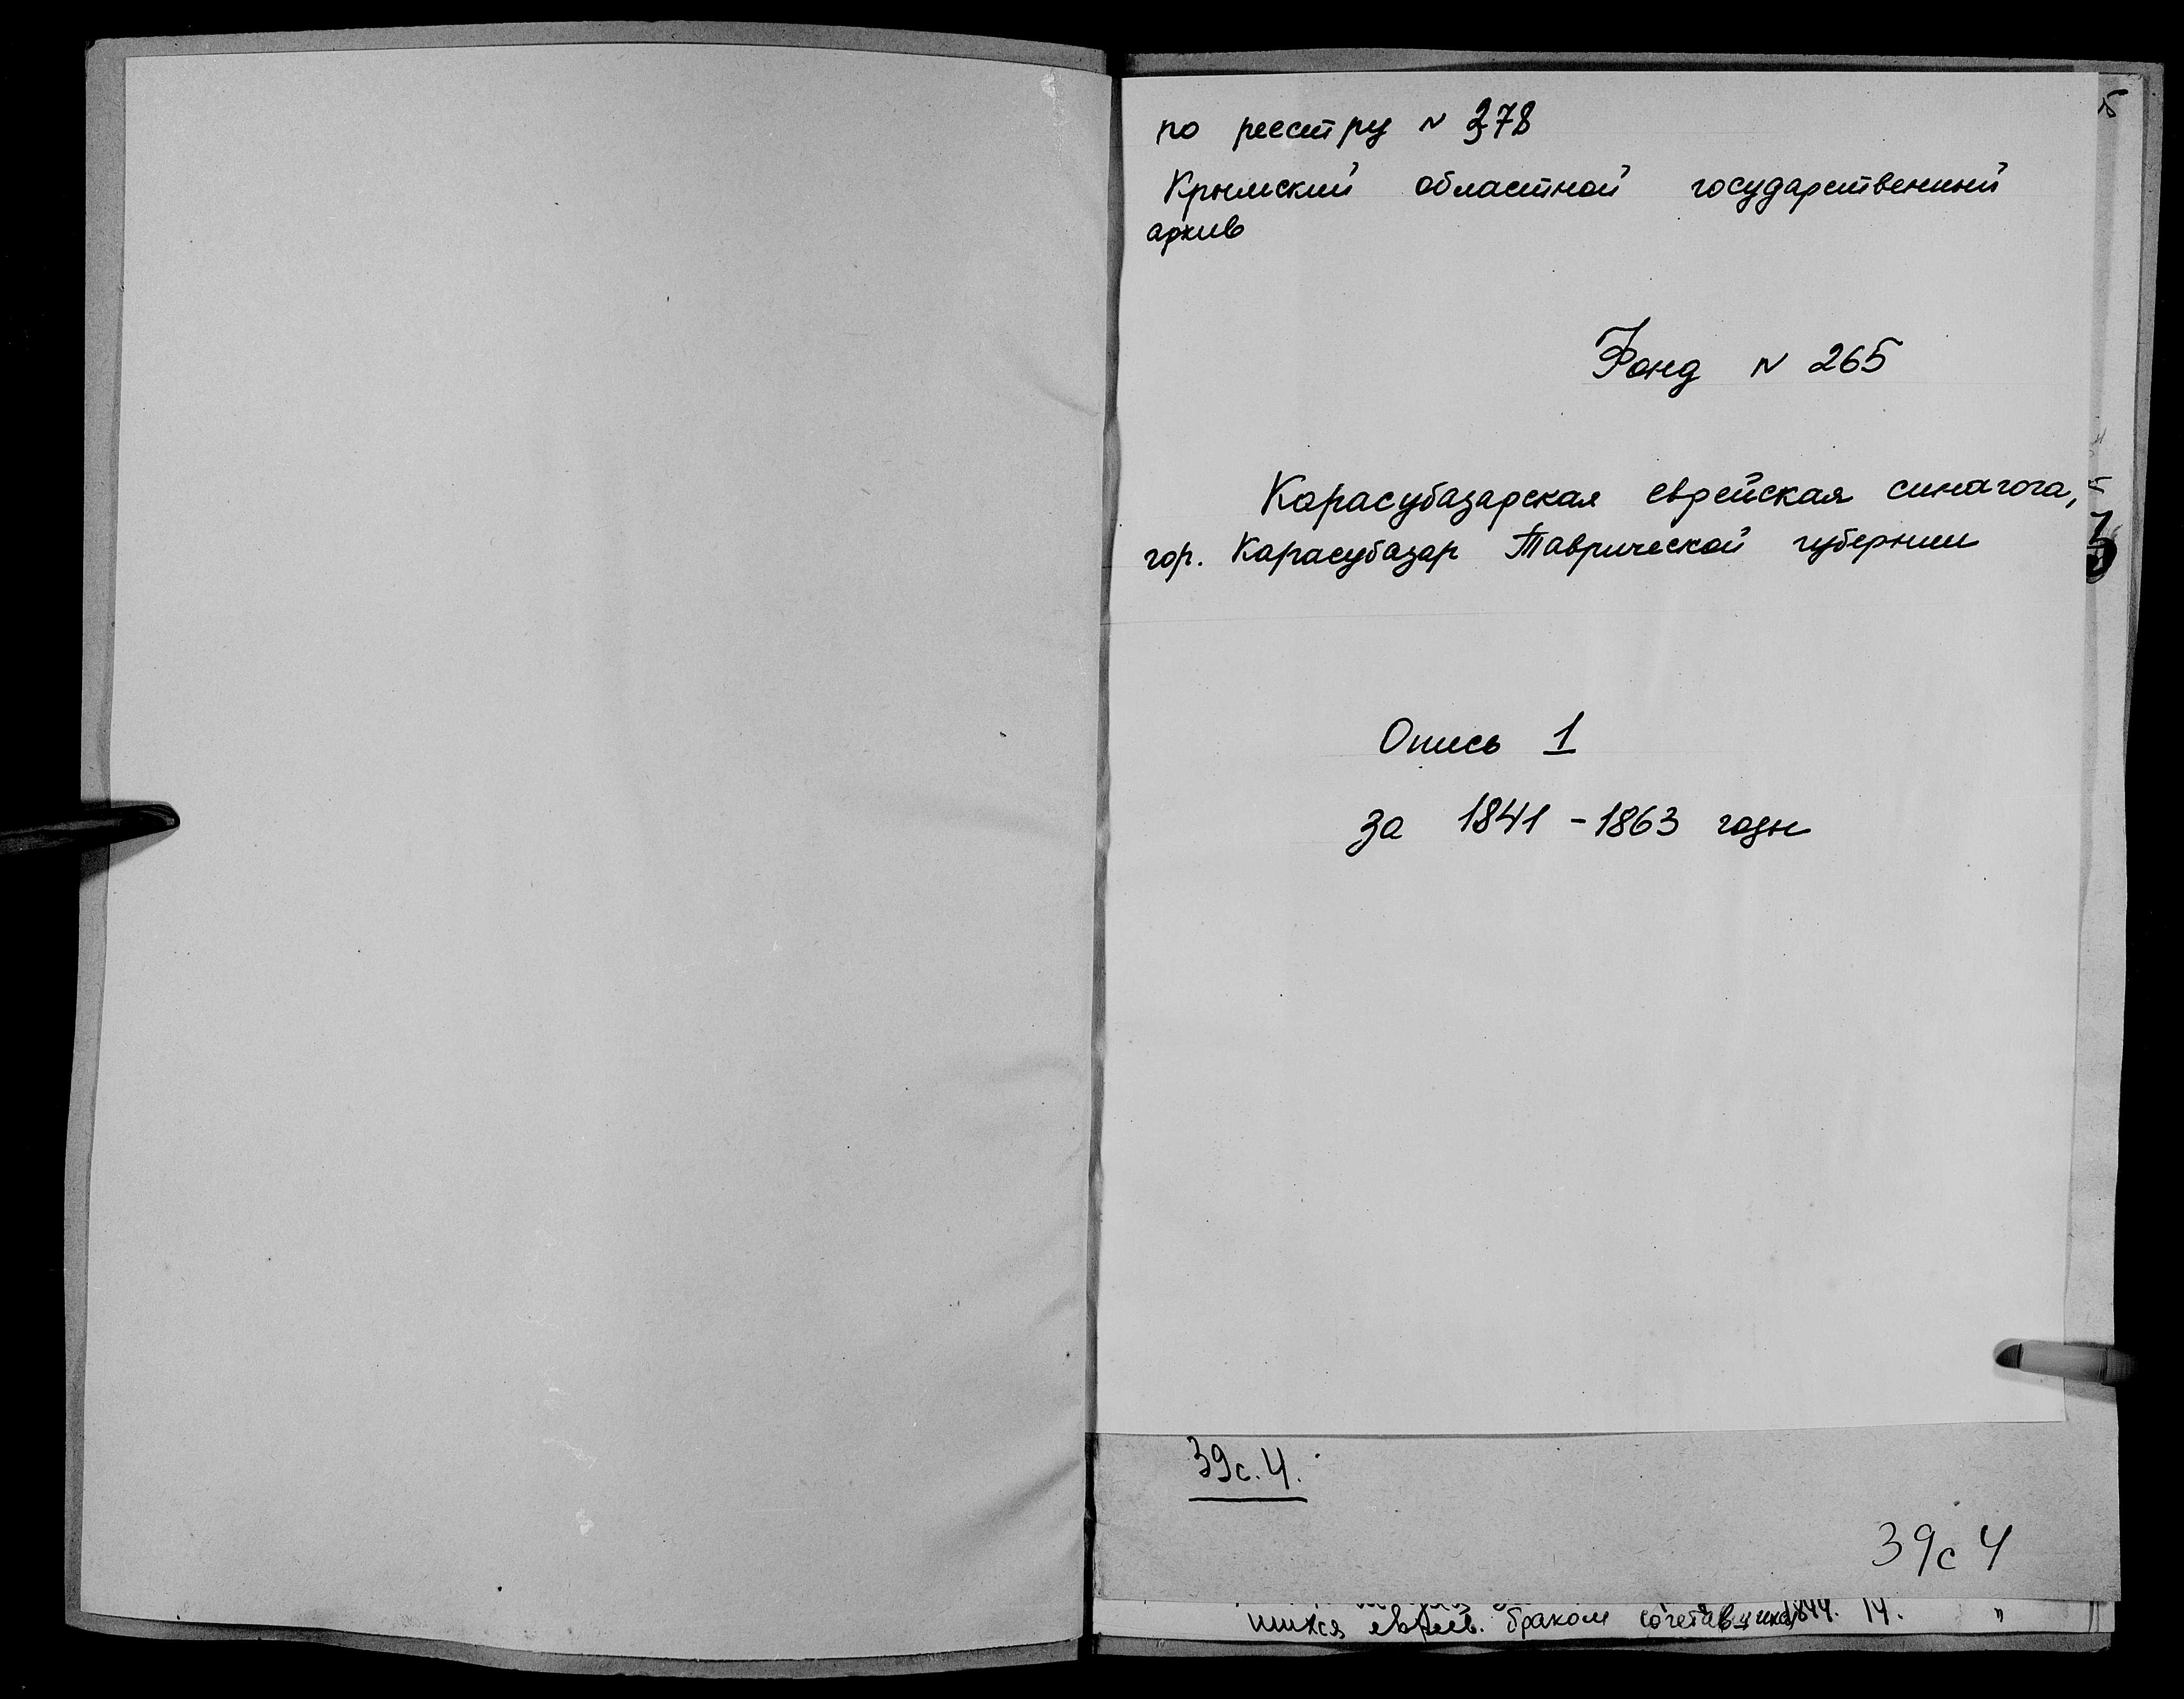 по реестру N 378
Крымский областной государственный
архив
Фонд N 265
Карасубазарская еврейская синагога,
гор. Карасубазар Таврической губернии
Опись 1
за 1841 - 1863 годы
39с.4.
39с 4
шихся евреев. браком сочетавшихся 1844. 14. "